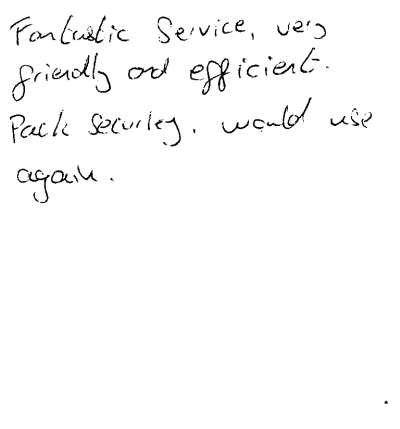 Fantastic Service, very
friendly and efficient.
Pack securley. would use
again.